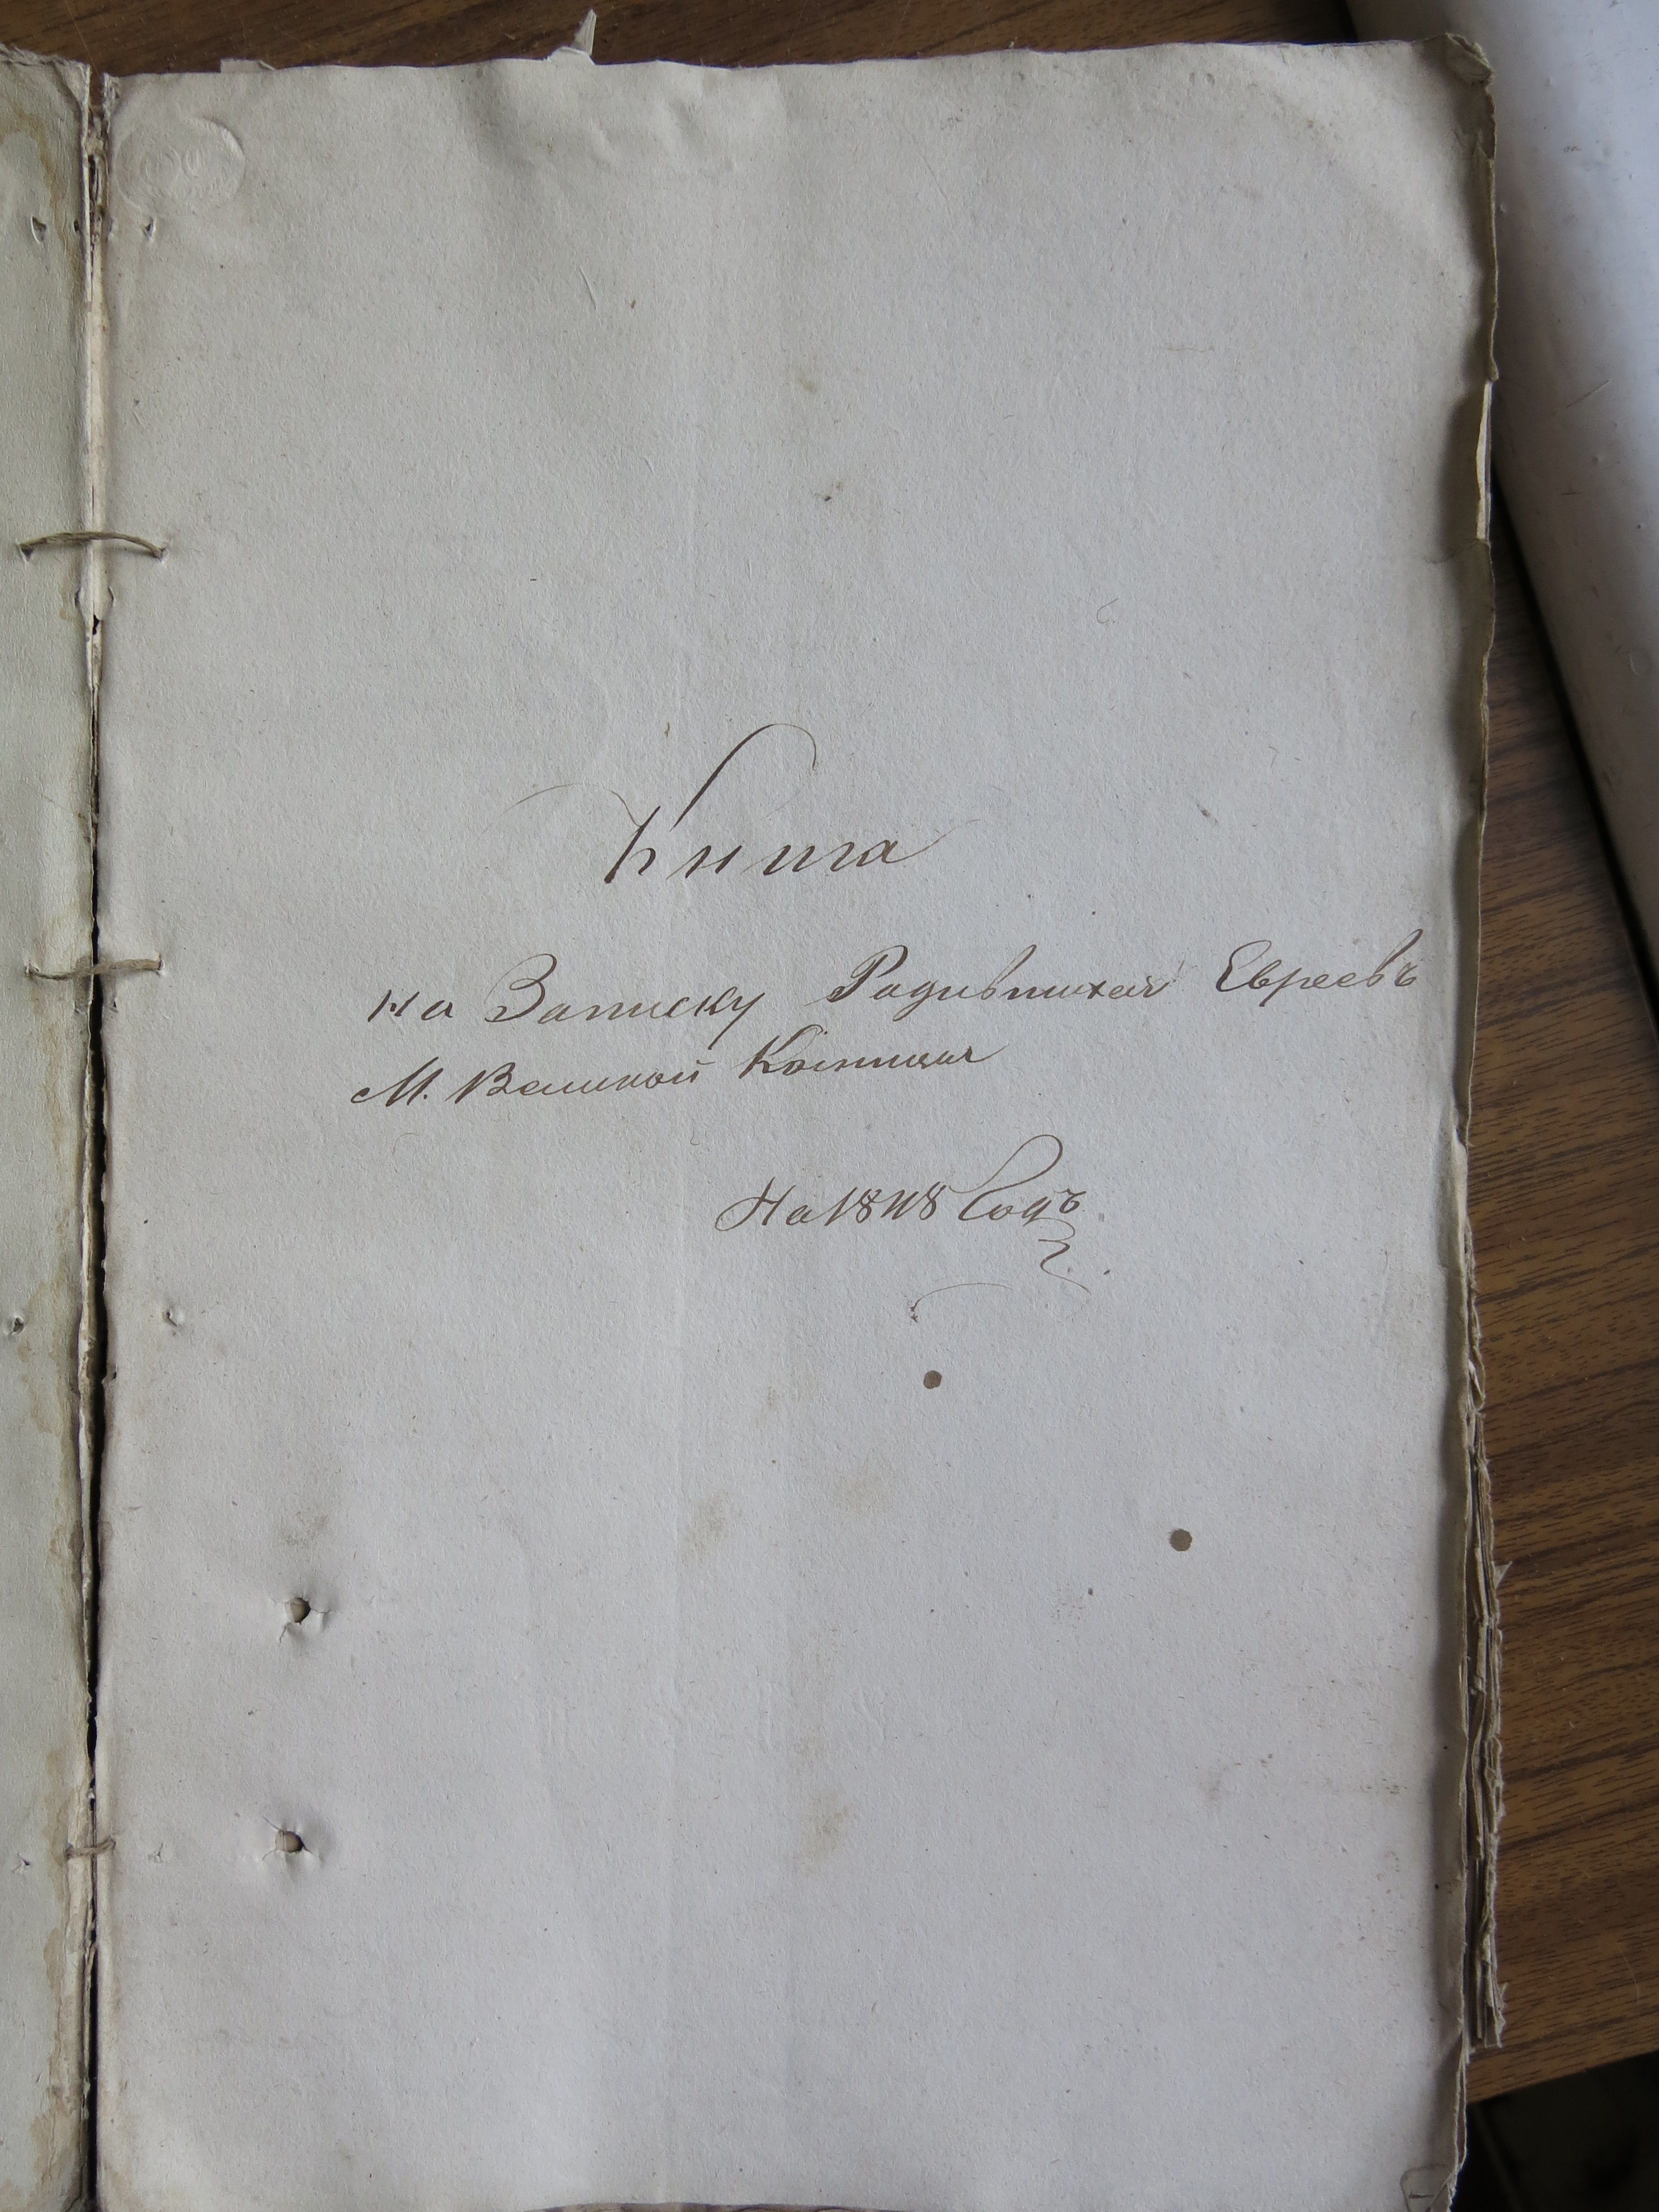 Книга
на Записку Родившихся Евреевъ
М. Великой Кошницы
На 1848 Годъ